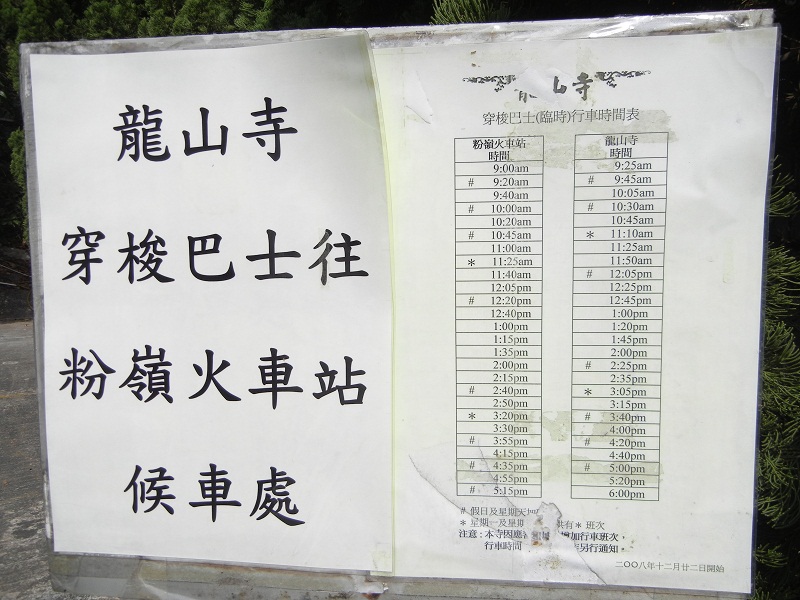 龍山寺
穿梭巴士往
粉嶺火車站
候車處
龍山寺
穿梭巴士(臨時)行車時間表
粉嶺火車站
時間
9:00am
# 9:20am
9:40am
# 10:00am
10:20am
# 10:45am
11:00am
* 11:25am
11:40am
12:05pm
# 12:20pm
12:40pm
1:00pm
1:15pm
1:35pm
2:00pm
2:15pm
# 2:40pm
2:50pm
* 3:20pm
3:30pm
# 3:55pm
4:15pm
# 4:35pm
4:55pm
# 5:15pm
龍山寺
時間
9:25am
# 9:45am
10:05am
# 10:30am
10:45am
* 11:10am
11:25am
11:50am
# 12:05pm
12:25pm
12:45pm
1:00pm
1:20pm
1:45pm
2:00pm
# 2:25pm
2:35pm
* 3:05pm
3:15pm
# 3:40pm
4:00pm
# 4:20pm
4:40pm
# 5:00pm
5:20pm
6:00pm
# 假日及星期天
* 星期一及星期 共有 * 班次
注意：本寺因應 加行車班次，
行車時間 另行通知。
二〇〇八年十二月廿二日開始